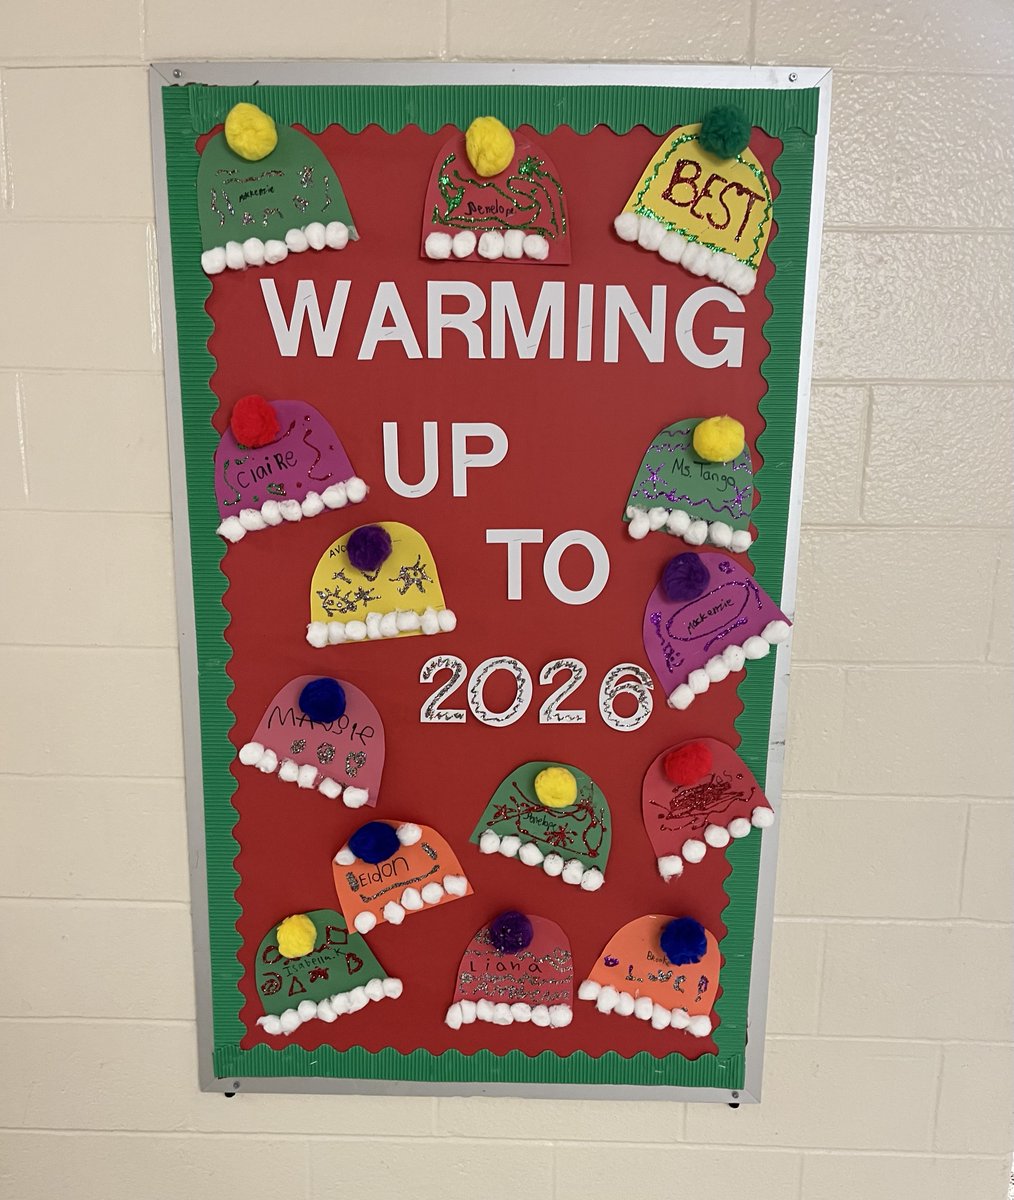 Makenzie
Penelope
BEST
WARMING
ClaiRe
UP
Ms. Tango
TO
Mackenzie
2026
MAggIe
Penelope
Eldon
Isabella.K
Liana